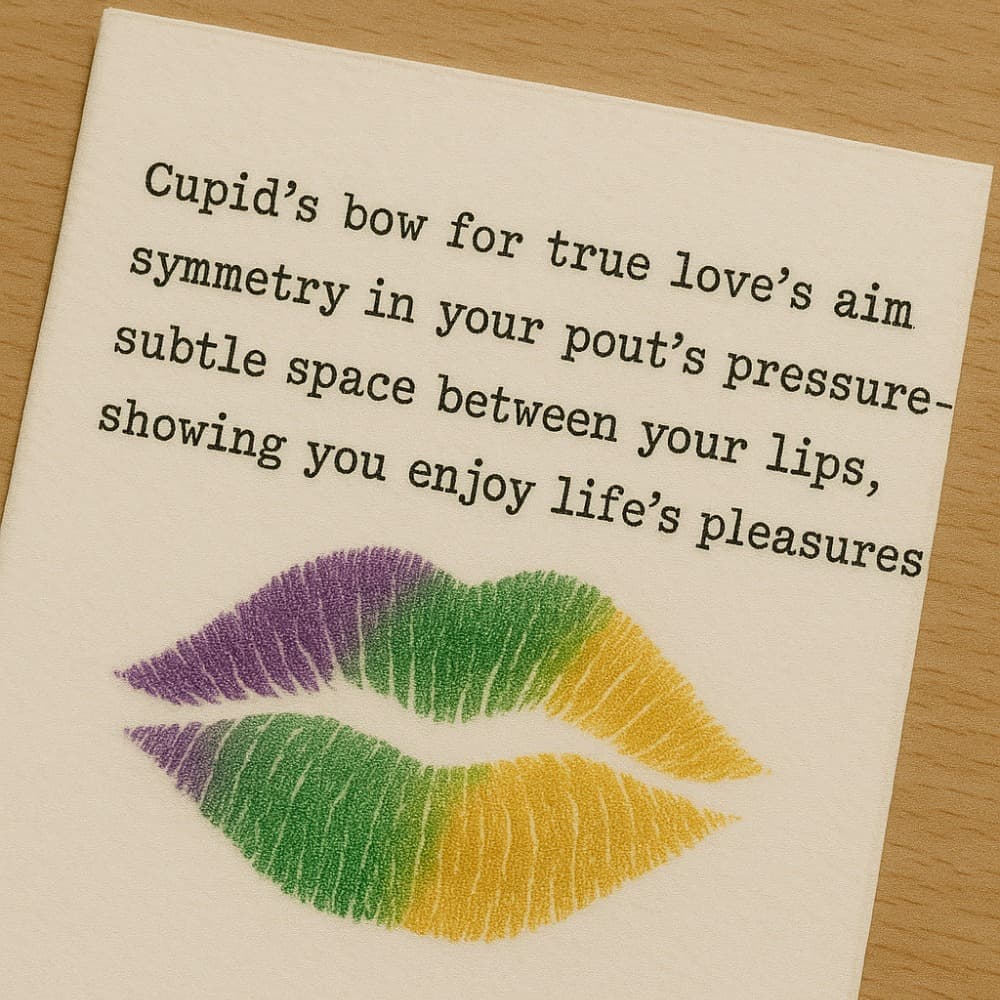 Cupid’s bow for true love’s aim
symmetry in your pout’s pressure-
subtle space between your lips,
showing you enjoy life’s pleasures